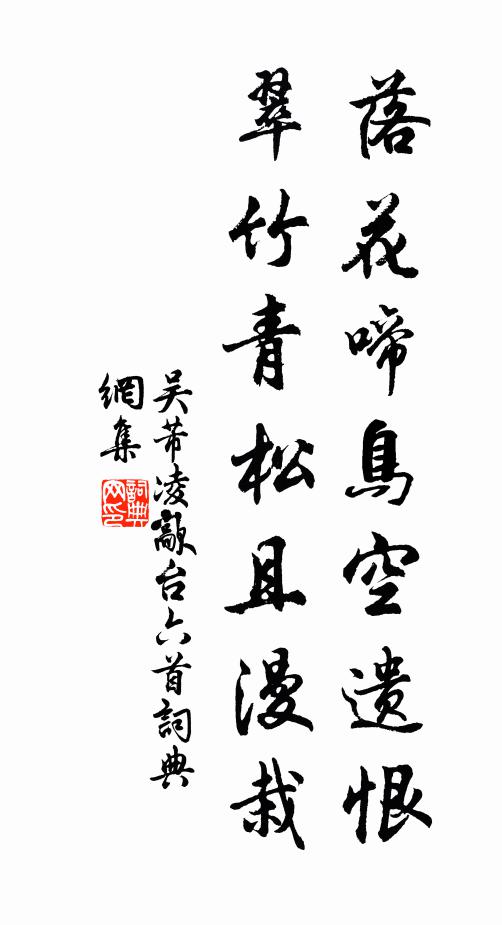 落花啼鳥空遗恨
翠竹青松且漫栽
吴芾凌歊台六首詞典
網集
詞典
网印